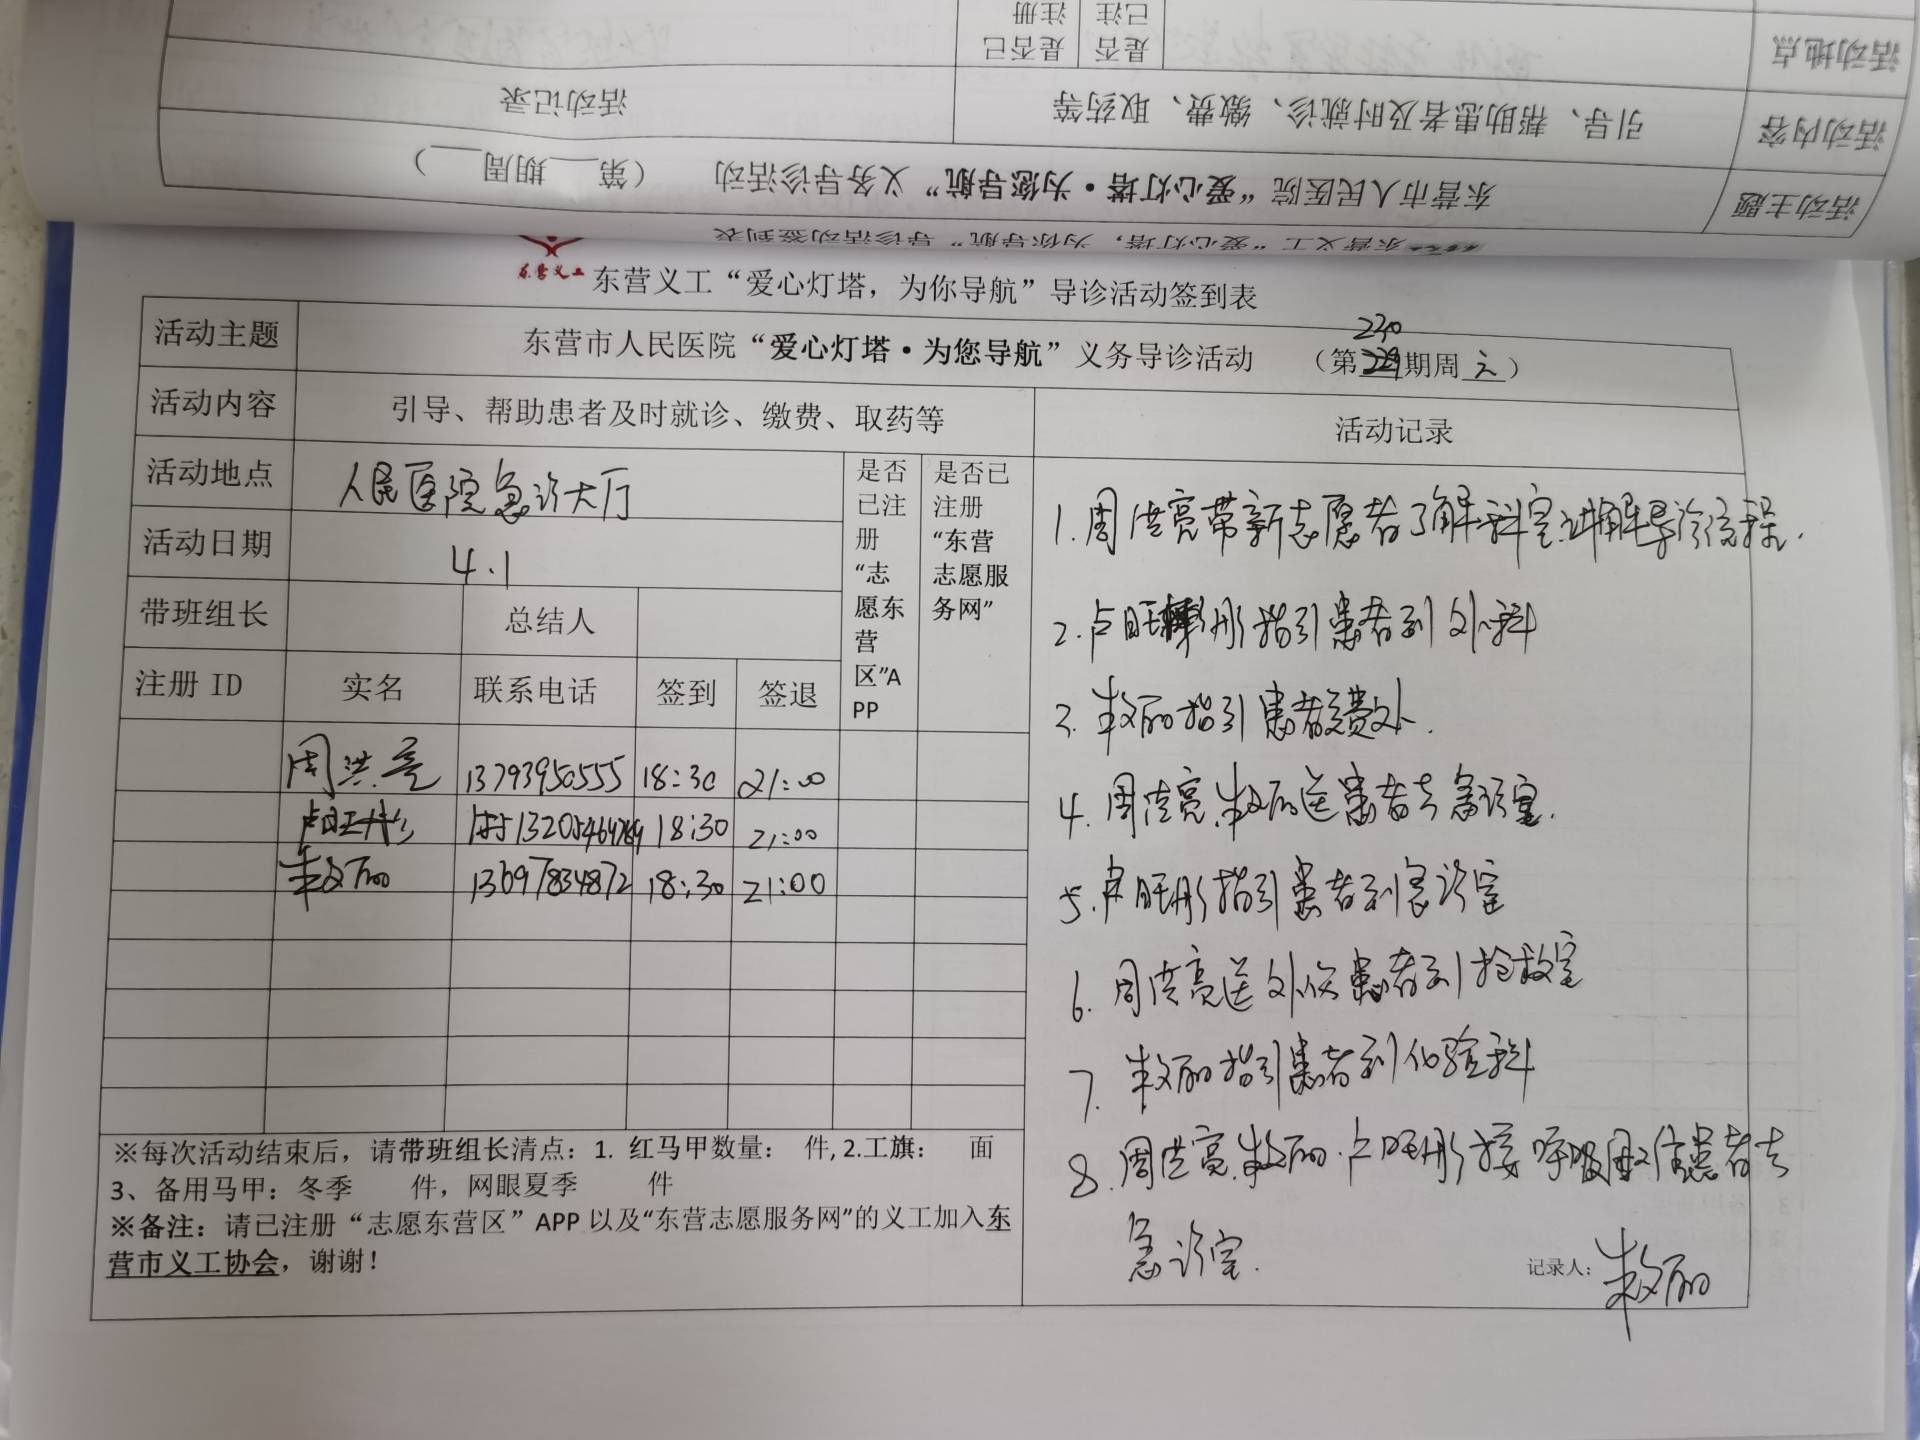 活动地点
是否已注册
是否已注
活动内容
引导、帮助患者及时就诊、缴费、取药等
活动记录
活动主题
东营市人民医院“爱心灯塔·为您导航”义务导诊活动 （第 期周 ）
东营义工“爱心灯塔，为你导航”导诊活动签到表
东营义工
东营义工“爱心灯塔，为你导航”导诊活动签到表
活动主题
东营市人民医院“爱心灯塔·为您导航”义务导诊活动 （第230期周 ）
活动内容
引导、帮助患者及时就诊、缴费、取药等
活动记录
活动地点
人民医院急诊大厅
活动日期
4.1
带班组长
总结人
是否
已注
册
“志
愿东
营
区”A
PP
是否已
注册
“东营
志愿服
务网”
注册 ID 实名 联系电话 签到 签退
周洪亮 13793950555 18:30 21:00
18:30 21:00
朱文丽 13697834872 18:30 21:00
※每次活动结束后，请带班组长清点：1. 红马甲数量： 件，2.工旗： 面
3、备用马甲：冬季 件，网眼夏季 件
※备注：请已注册“志愿东营区”APP 以及“东营志愿服务网”的义工加入东
营市义工协会，谢谢！
1.周洪亮带新志愿者了解科室.讲解导诊流程.
2.卢旺彤指引患者到外科
3.朱文丽指引患者交费处.
4.周洪亮.朱文丽送患者去急诊室.
5.卢旺彤指引患者到急诊室
6.周洪亮送外伤患者到抢救室
7.朱文丽指引患者到化验科
8.周洪亮.朱文丽.卢旺彤接呼吸困难患者去
急诊室.
记录人：朱文丽